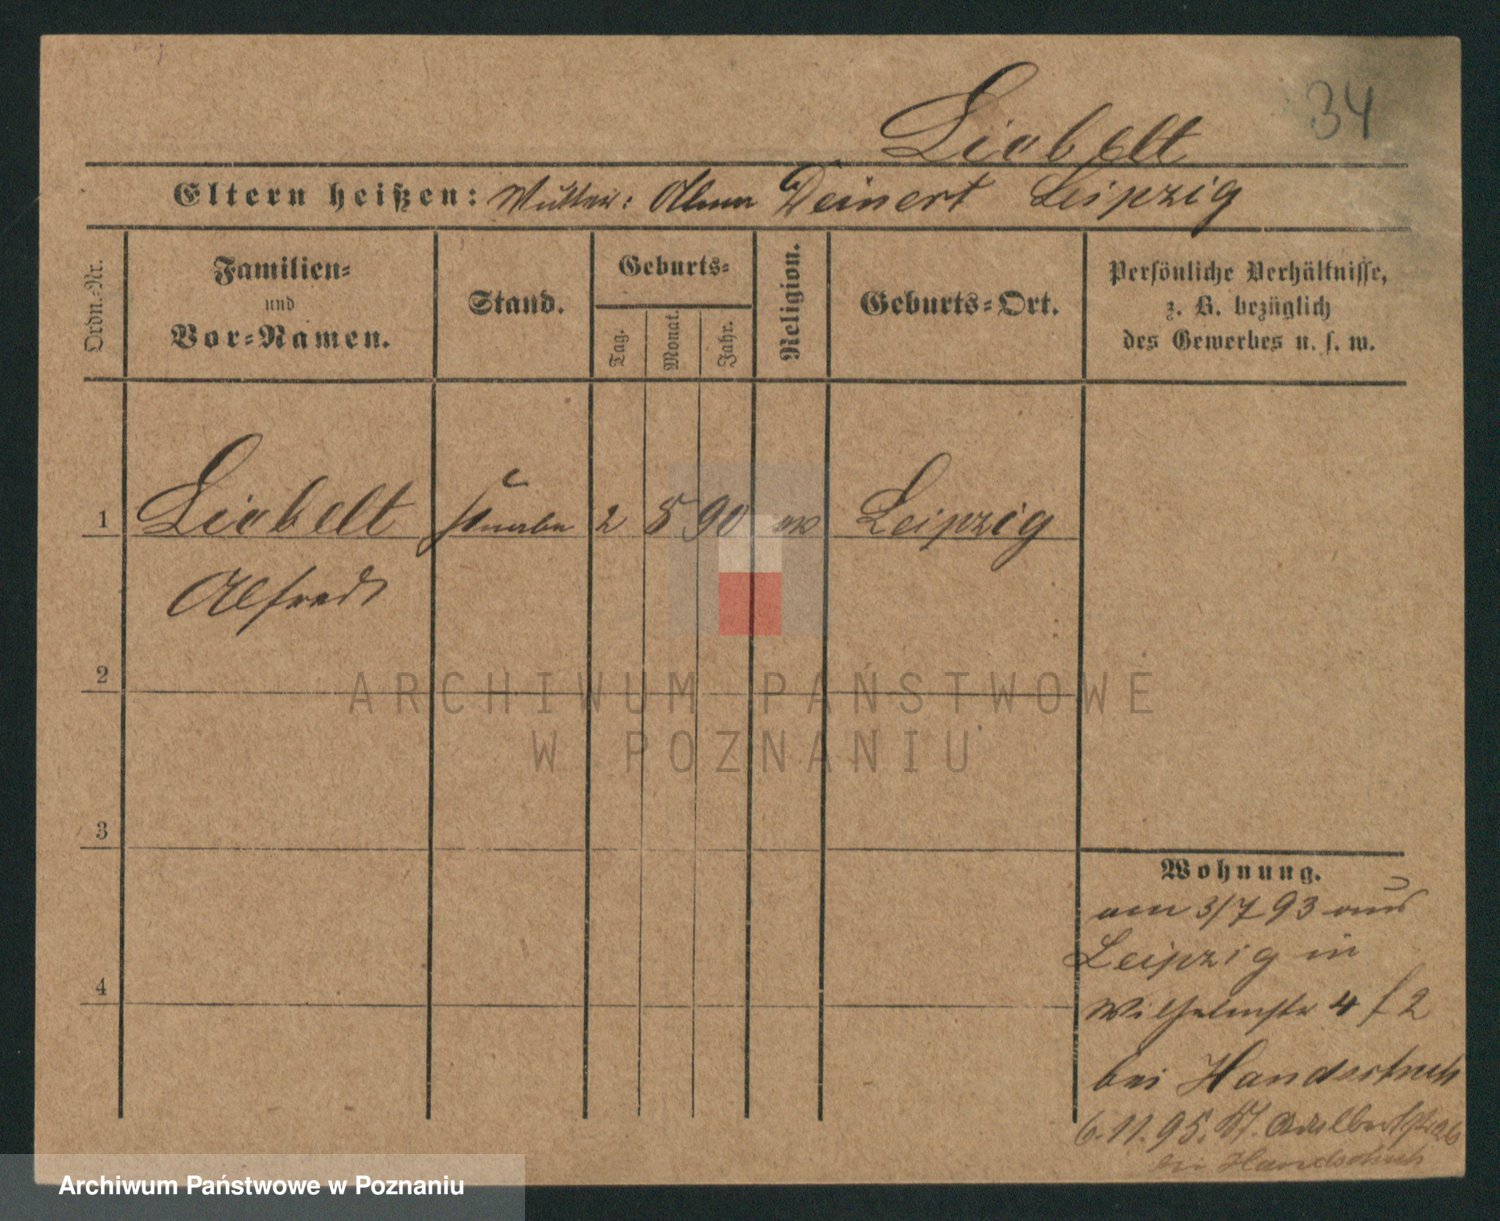 34
Liebelt
Eltern heißen: Mutter: Anna Deinert Leipzig
Ordn.-Nr.
Familien-
und
Vor-Namen.
Stand.
Geburts-
Tag.
Monat.
Jahr.
Religion.
Geburts-Ort.
Persönliche Verhältnisse,
z. B. bezüglich
des Gewerbes u. s. w.
1 Liebelt 2 5 90 Leipzig
Alfred
2
3
4
Wohnung.
am 3/7 93 aus
Leipzig in
Wilhelmstr 4 f 2
bei Handschuh
6.11.95. St. Adalbertstr 26
bei Handschuh
ARCHIWUM PAŃSTWOWE
W POZNANIU
Archiwum Państwowe w Poznaniu